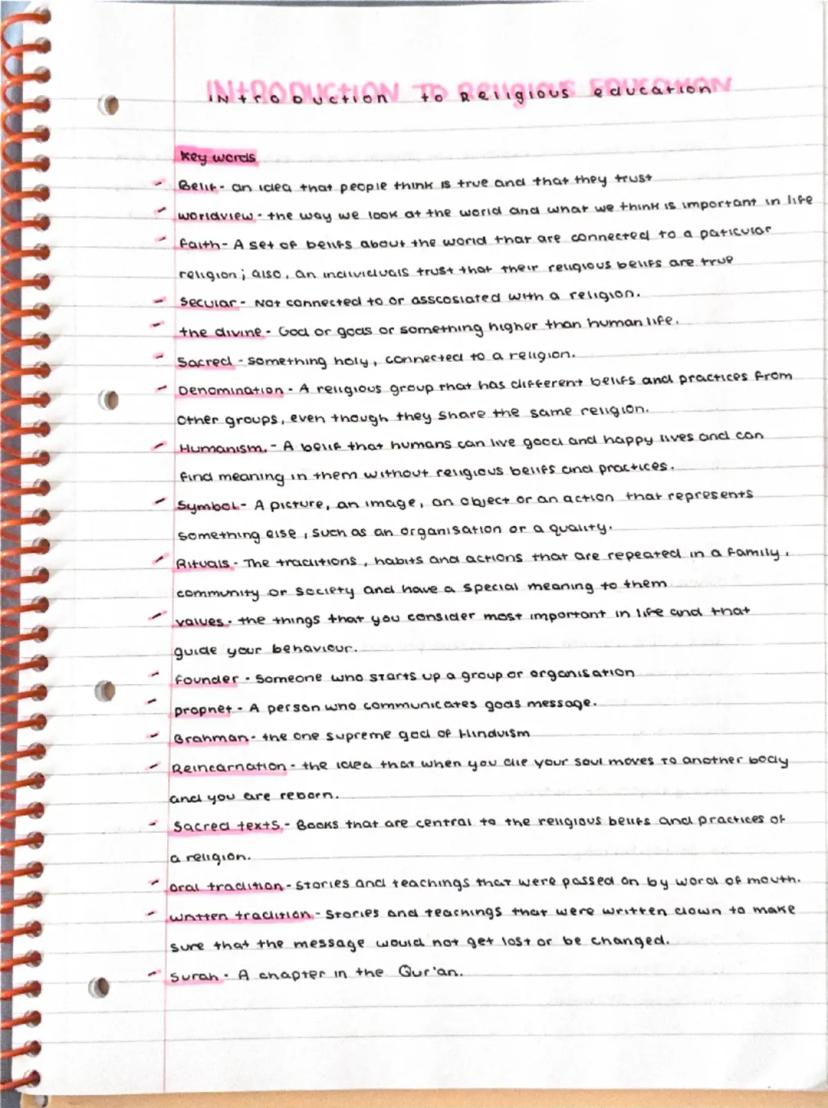 INTRODUCTION TO RELIGIOUS EDUCATION
Introduction to Religious education
Key words
- Belif - an idea that people think is true and that they trust
- worldview - the way we look at the world and what we think is important in life
- Faith - A set of belifs about the world that are connected to a paticular
religion; also, an individuals trust that their religious belifs are true
- Secular - Not connected to or asscosiated with a religion.
- the divine - God or gods or something higher than human life.
- Sacred - something holy, connected to a religion.
- Denomination - A religious group that has different belifs and practices from
other groups, even though they share the same religion.
- Humanism. - A belif that humans can live good and happy lives and can
find meaning in them without religious belifs and practices.
- Symbol - A picture, an image, an object or an action that represents
something else, such as an organisation or a quality.
- Rituals - The traditions, habits and actions that are repeated in a family,
community or society and have a special meaning to them
- values - the things that you consider most important in life and that
guide your behaviour.
- Founder - Someone who starts up a group or organisation
- prophet - A person who communicates gods message.
- Brahman - the one supreme god of Hinduism
- Reincarnation - the idea that when you die your soul moves to another body
and you are reborn.
- Sacred texts. - Books that are central to the religious belifs and practices of
a religion.
- oral tradition - Stories and teachings that were passed on by word of mouth.
- written tradition - Stories and teachings that were written down to make
sure that the message would not get lost or be changed.
- Surah - A chapter in the Qur'an.